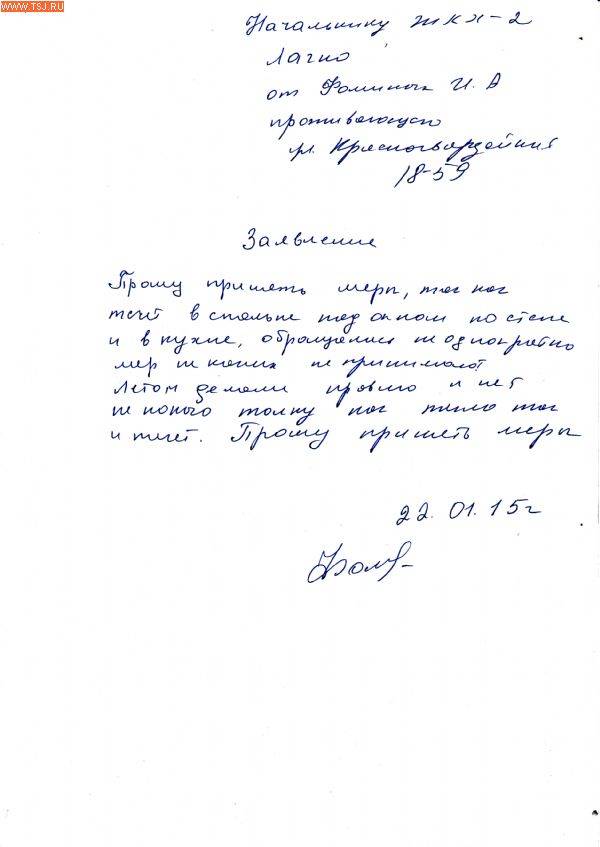 WWW.TSJ.RU
Начальнику ЖКХ-2
Лагно
от Фоминых И. А
проживающего
ул. Красногвардейская
18-59
Заявление
Прошу принять меры, так как
течёт в спальне под окном по стене
и в кухне, обращались не однократно
мер не каких не принимают
Летом делали кровлю и нет
не какого толку как текло так
и течёт. Прошу принять меры
22.01.15г